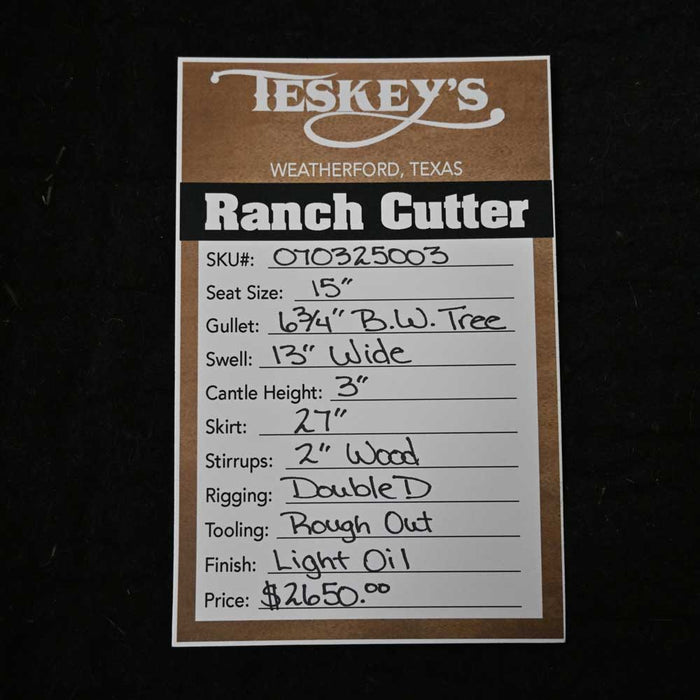 TESKEY'S
WEATHERFORD, TEXAS
Ranch Cutter
SKU#: 070325003
Seat Size: 15"
Gullet: 6 3/4" B.W. Tree
Swell: 13" Wide
Cantle Height: 3"
Skirt: 27"
Stirrups: 2" Wood
Rigging: Double D
Tooling: Rough Out
Finish: Light Oil
Price: $2650.00